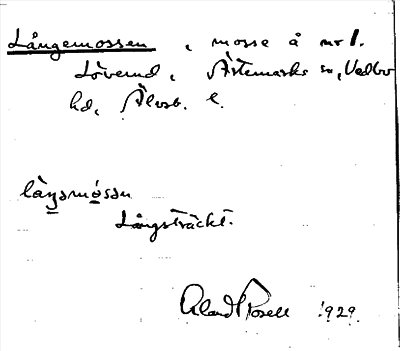 Långemossen, mosse å nr 1.
Löverud, Ärtemarks sn, Vedbo
hd, Älvsb. l.
låŋsmósan
Långsträckt.
Erland Rosell 1929